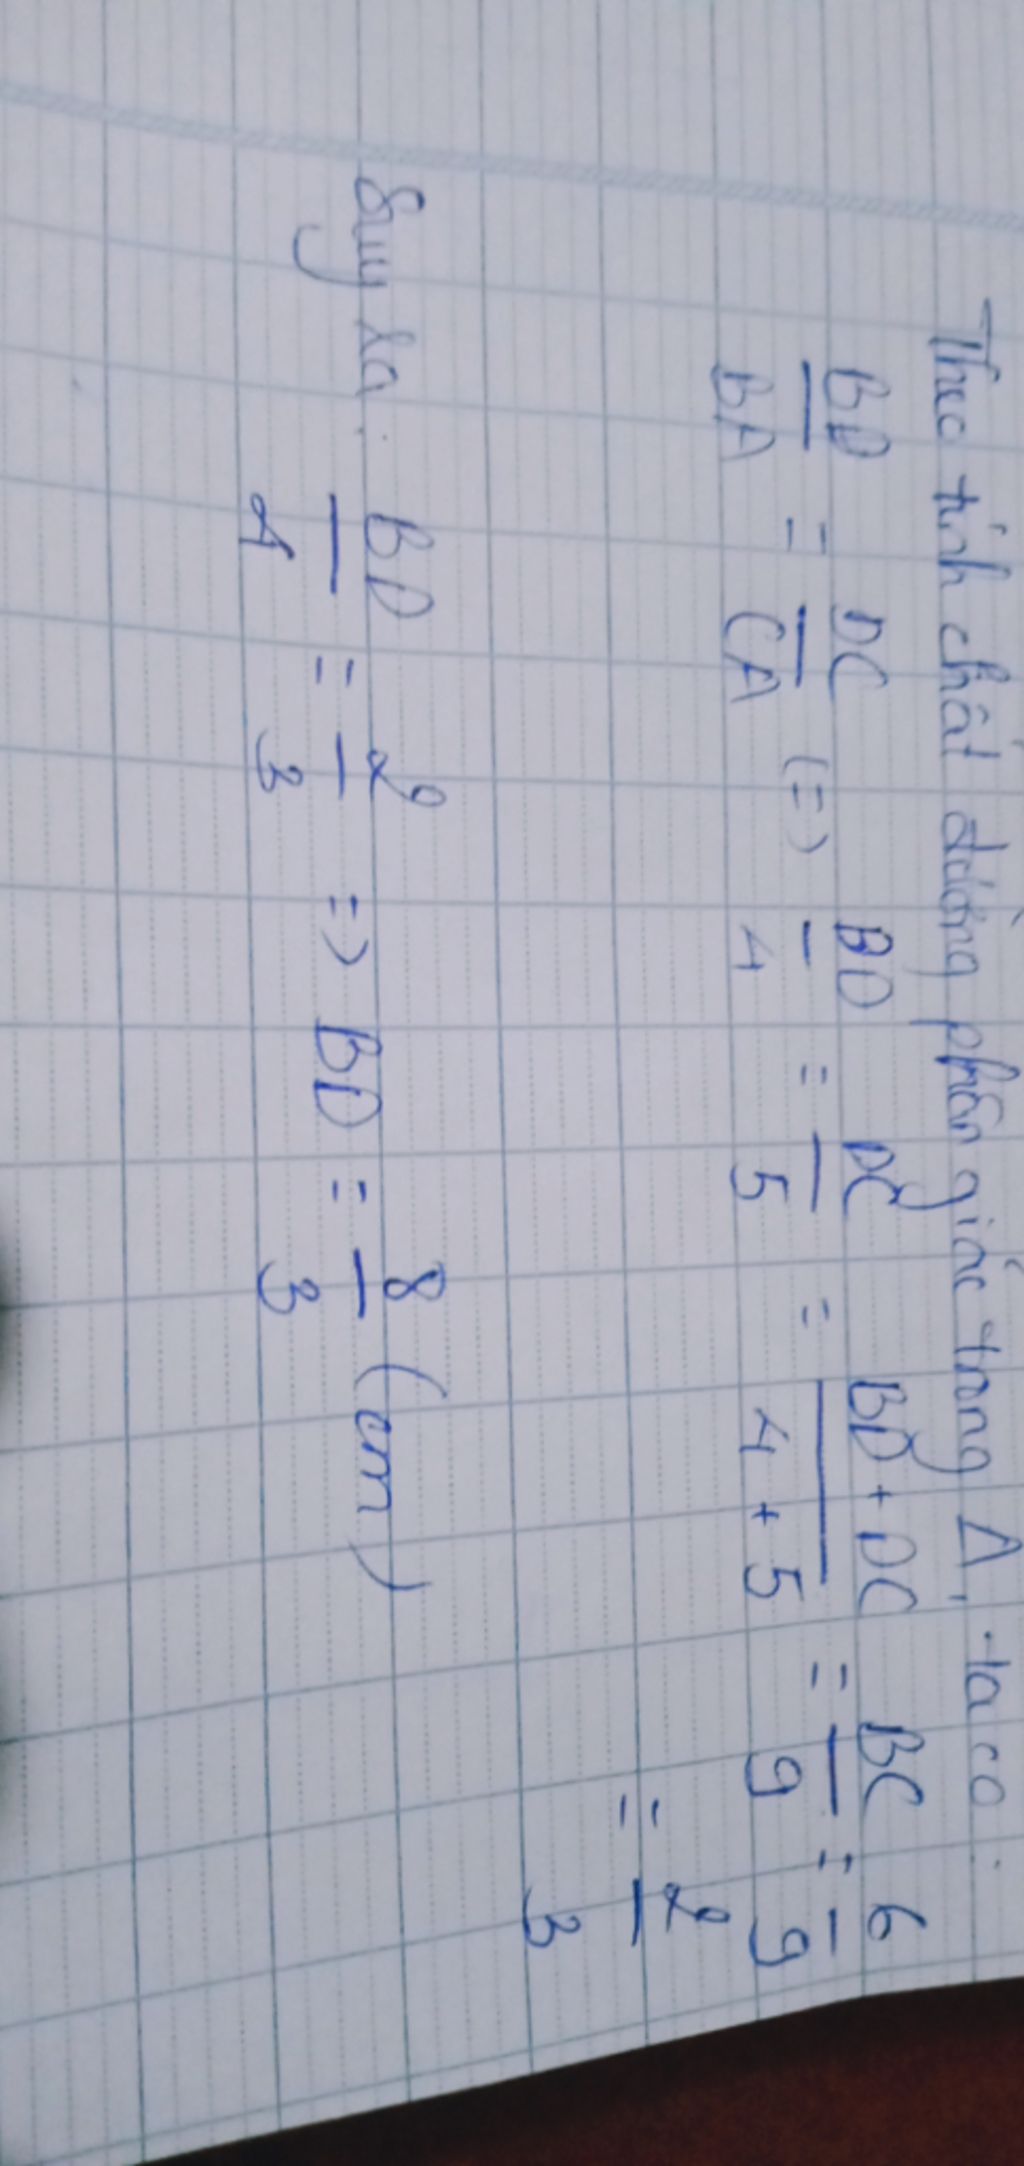 Theo tính chất đường phân giác trong Δ, ta có:
BD/BA = DC/CA (=) BD/4 = DC/5 = BD + DC/4 + 5 = BC/9 = 6/9
= 2/3
Suy ra: BD/4 = 2/3 => BD = 8/3 (cm)